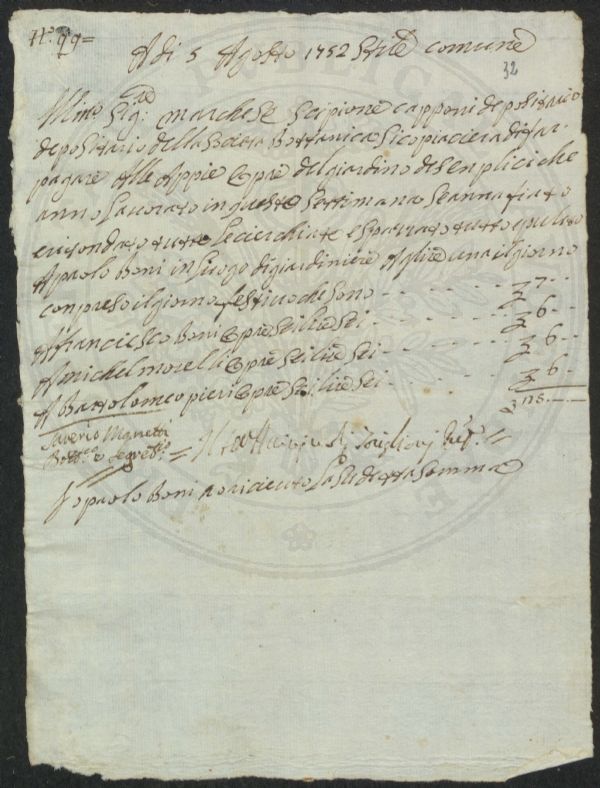 N.º 99=
A di 5 Agosto 1752 Stile comune
32
Ill.mo Sig.re marchese Scipione capponi depositario
depositario della Societa Bottanica Si copiaciera di far
pagare Alle Appie Opre del giardino de Senplici che
anno Lavorato in queste Settimana Seannafiato
e risondato tutte Le cierchiate e Spazzato tutto e pulito
A paolo Boni in Luogo di giardiniere A lire una il giorno
conpreso il giorno festivo che Sono - - - - - £ 7 - -
A franciesco Boni Opre Sei lire Sei - - - - - £ 6 - -
A michel morelli Opre Sei lire Sei - - - - - £ 6 - -
A Bartolomeo pieri Opre Sei lire Sei - - - - £ 6 -
Saverio Manetti £ 25. - -
Bott.co e Segret.rio =
Io paolo Boni o ricieuto La Sudetta Somma